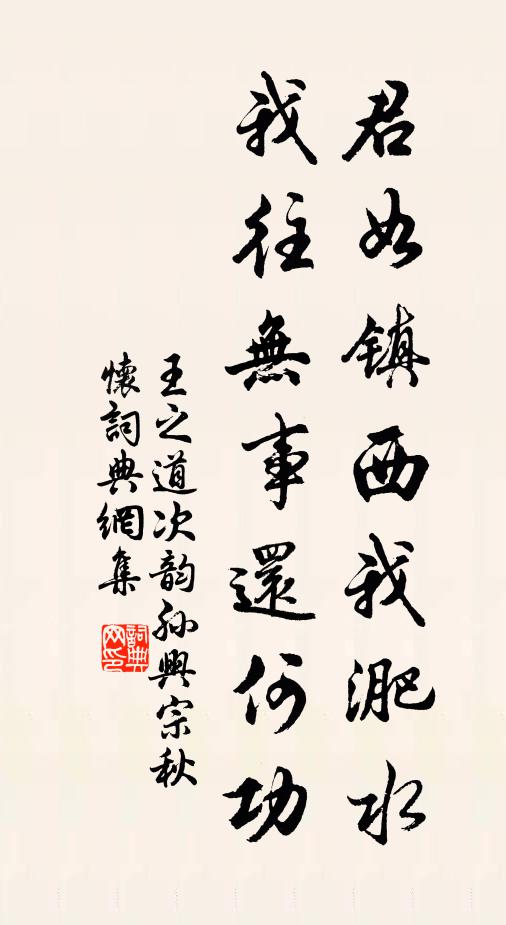 君如镇西我淝水
我往無事還何功
王之道次韵孙興宗秋
懷詞典網集
詞典網印